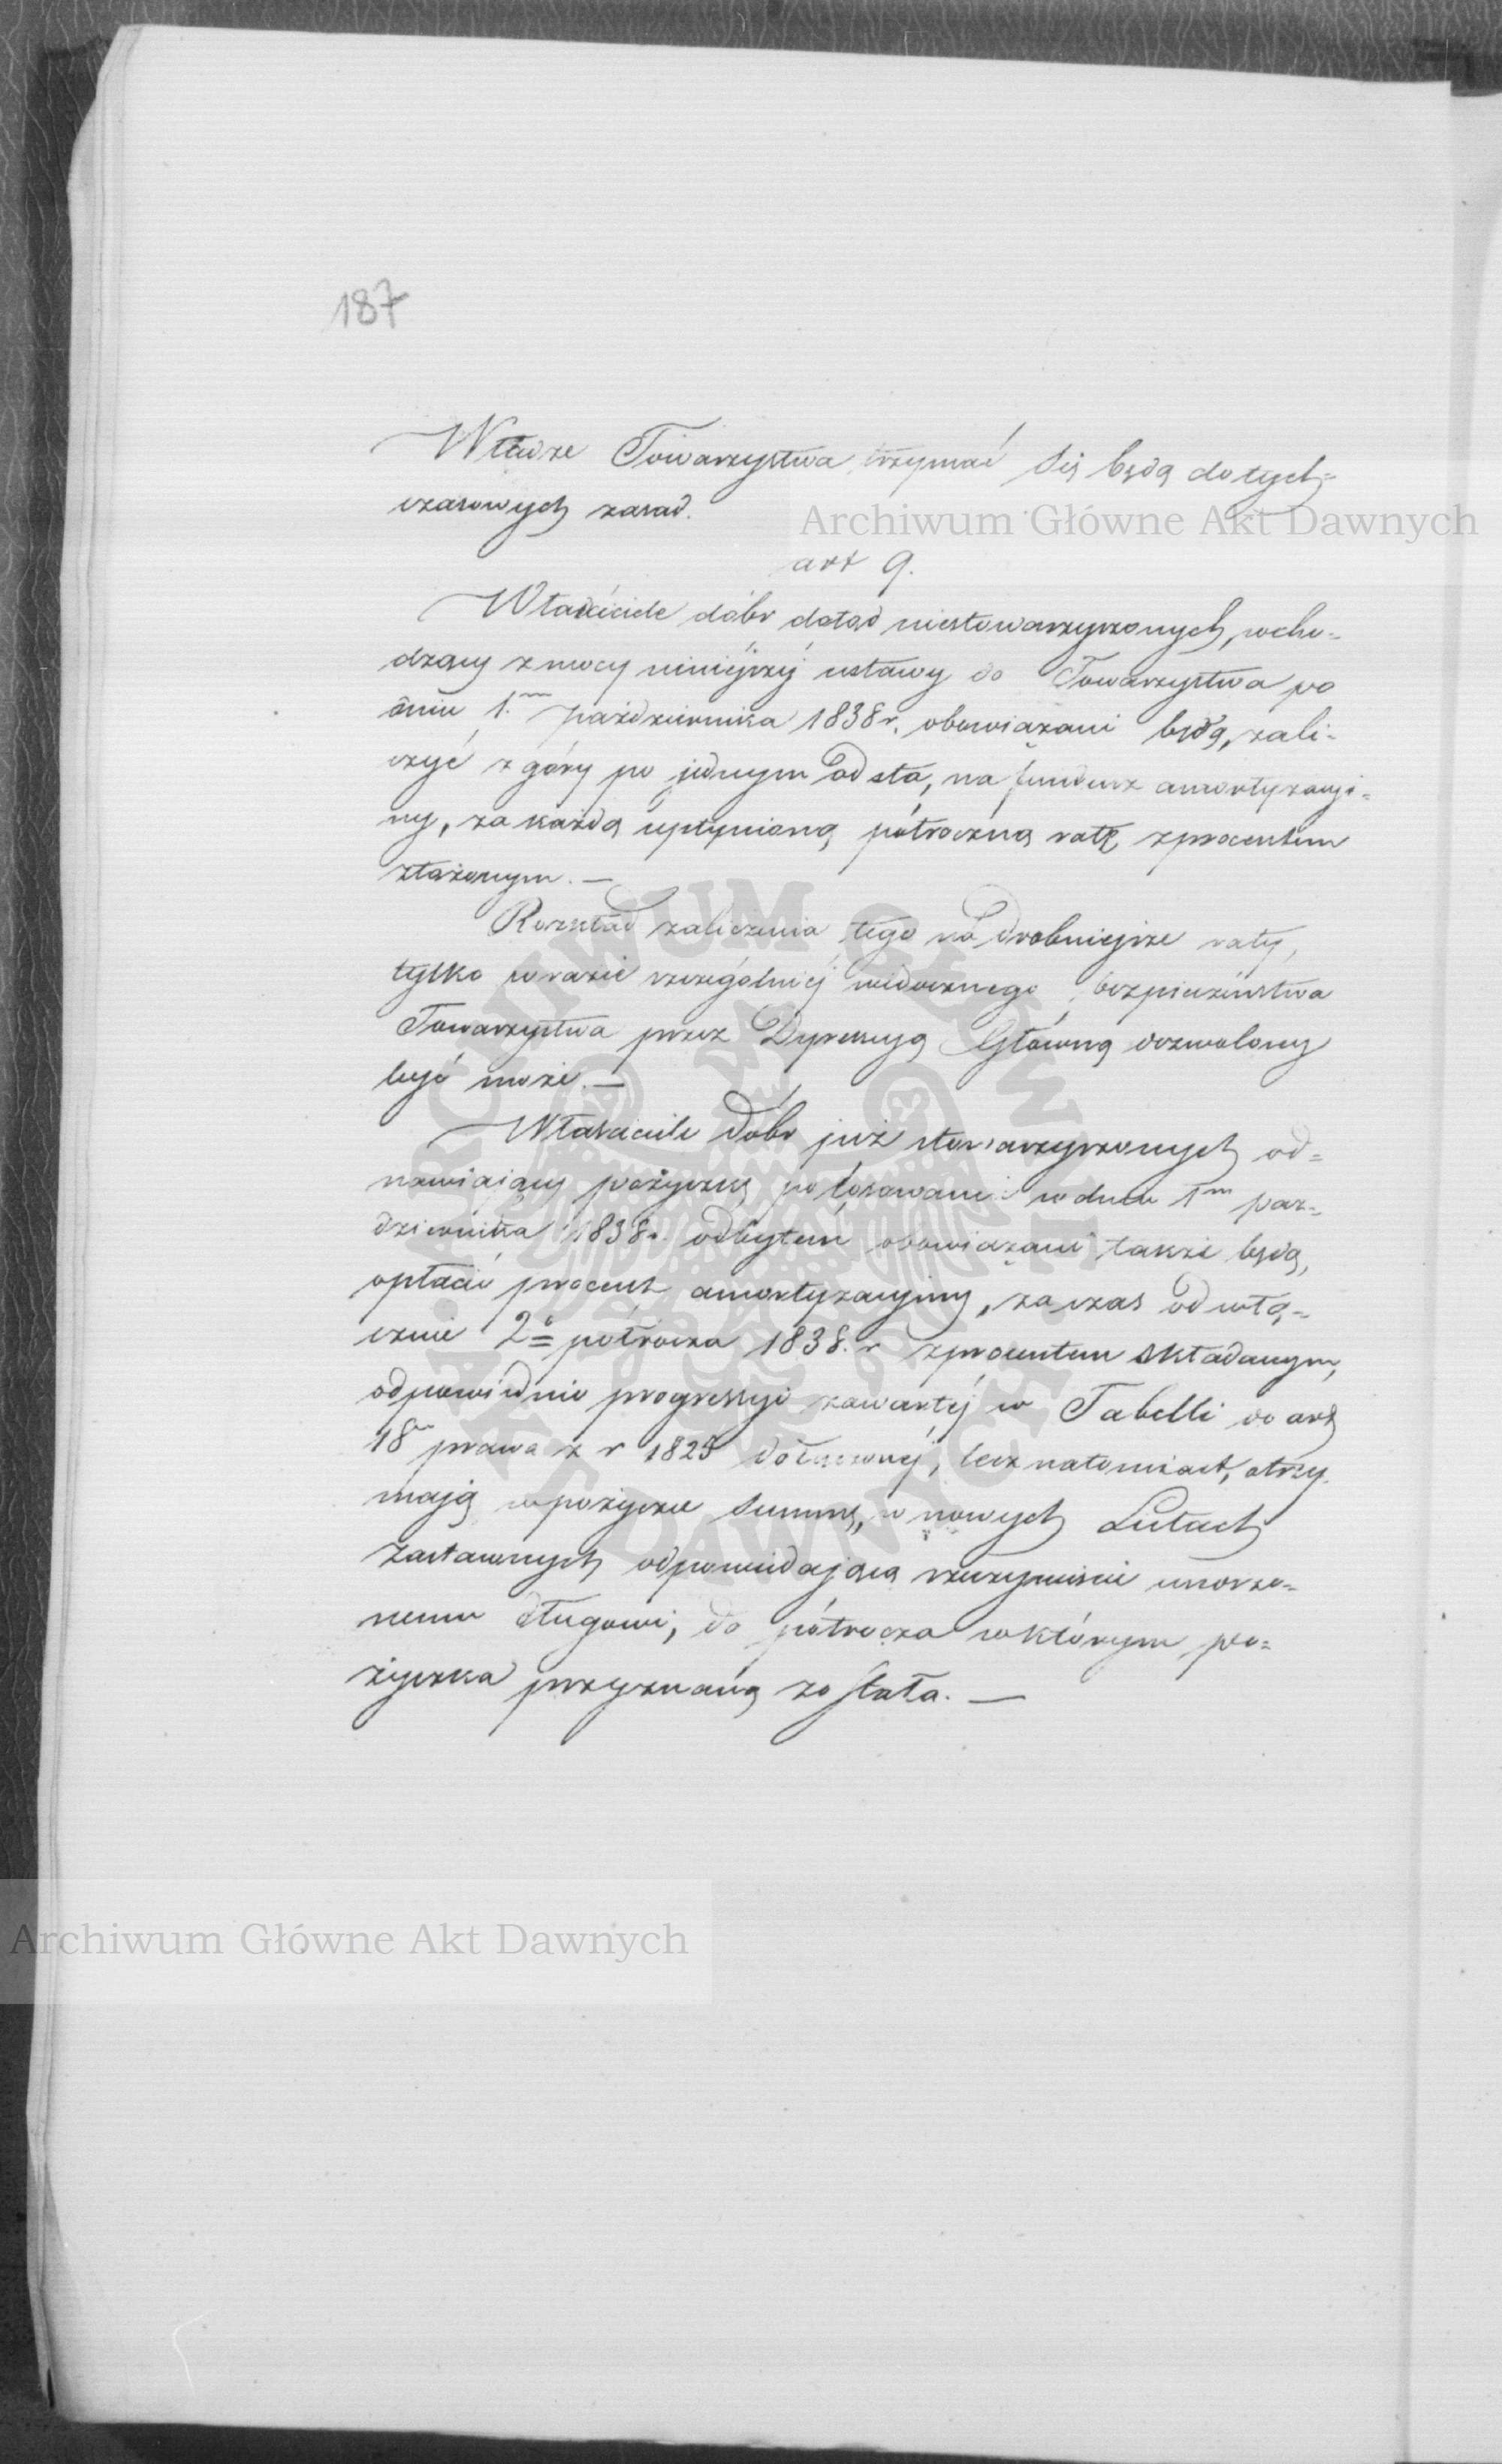 187
Władze Towarzystwa trzymać się będą dotych=
czasowych zasad.
Archiwum Główne Akt Dawnych
art 9.
Właściciele dóbr dotąd niestowarzyszonych, wcho=
dzący z mocy niniejszéj ustawy do Towarzystwa po
dniu 1.m października 1838 r. obowiązani będą, zali=
czyć z góry po jednym od sta, na fundusz amortyzacyi=
ny, za każdą upłynioną półroczną ratę z procentem
złożonym. —
Rozkład zaliczenia tego na drobniejsze raty,
tylko w razie szczególniéj widocznego bezpieczeństwa
Towarzystwa przez Dyrekcyą Główną dozwolony
być może. —
Właściciele dóbr już stowarzyszonych od=
nawiaiący pożyczkę po losowaniu w dniu 1m paź=
dziernika 1838 r. odbytem obowiązani także będą,
opłacić procent amortyzacyiny, za czas od włą=
cznie 2o półrocza 1838. r z procentem składanym,
odpowiednio progressyi zawartéj w Tabelli do art
18 prawa z r 1825 dołączonéj, lecz natomiast, otrzy
mają w pożyczce summę, w nowych Listach
Zastawnych odpowiadającą rzeczywiście umorzo=
nemu długowi, do półrocza w którym po=
życzka przyznaną zostala. —
Archiwum Główne Akt Dawnych
ARCHIWUM GŁÓWNE AKT DAWNYCH